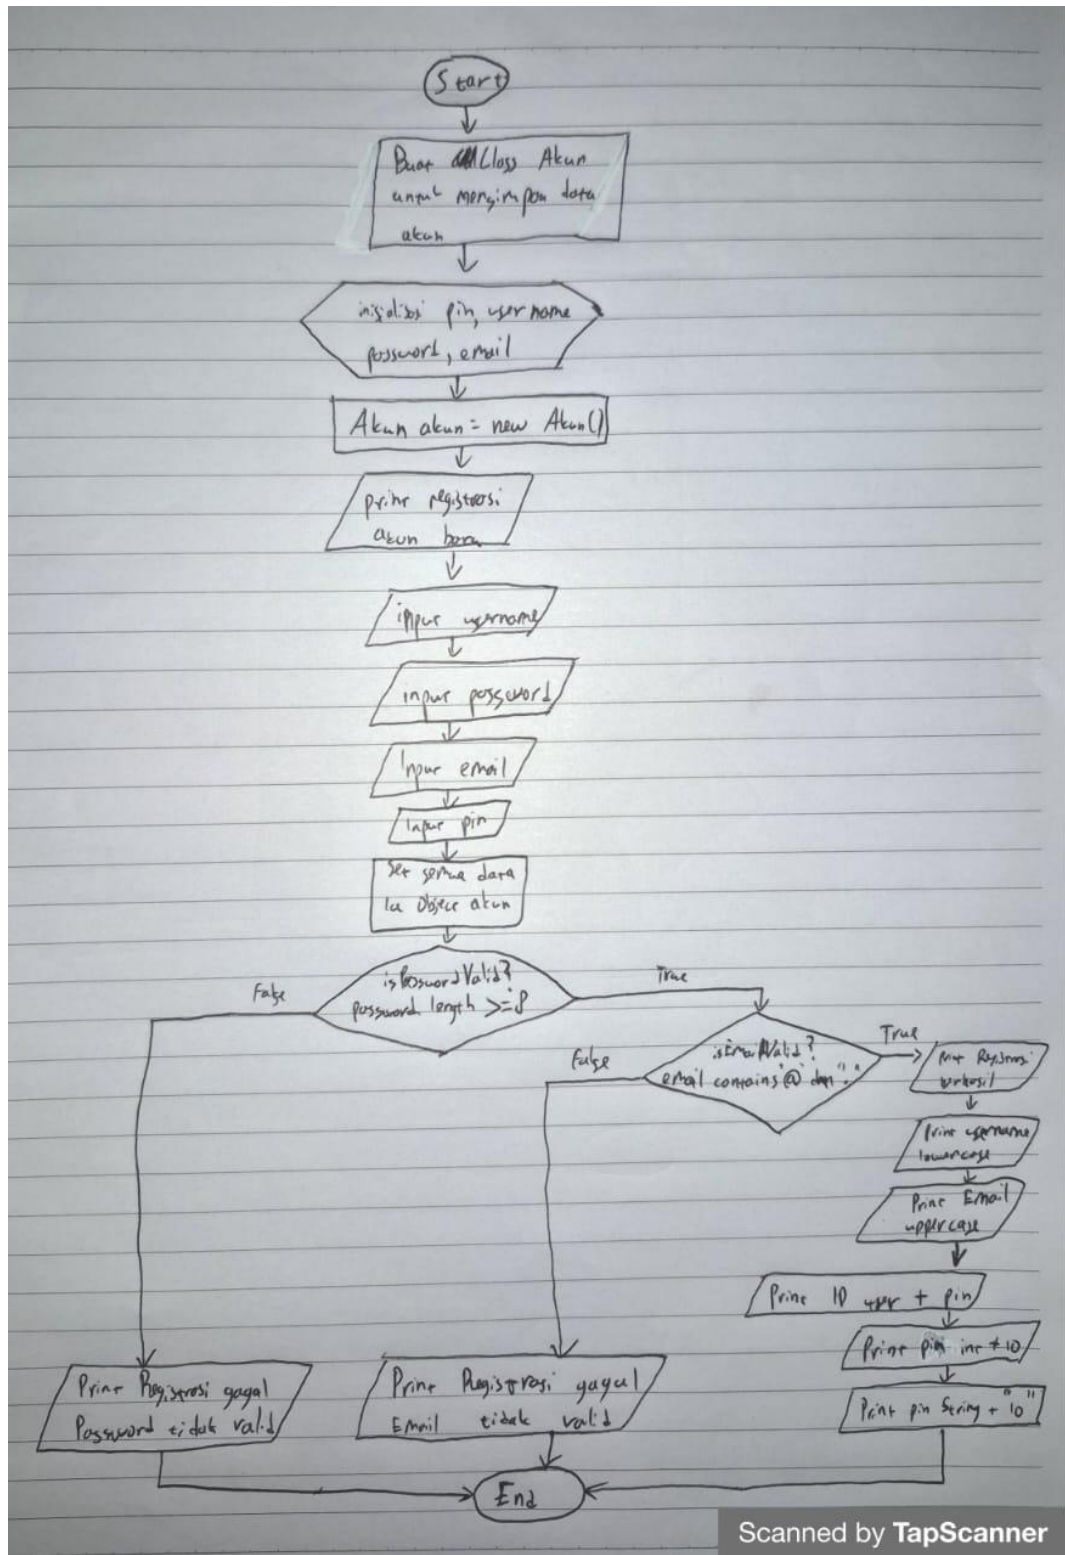 Start
Buat Class Akun
untuk mengimpan data
akun
inisialisasi pin, username
password, email
Akun akun = new Akun()
print registrasi
akun baru
input username
input password
Input email
Input pin
Set semua data
ke Object akun
isPasswordValid?
password length >= 8
False
True
isEmailValid?
email contains "@" dan "."
False
True
Print Registrasi
berhasil
Print username
lowercase
Print Email
uppercase
Print ID user + pin
Print pin int + 10
Print pin String + "10"
Print Registrasi gagal
Password tidak valid
Print Registrasi gagal
Email tidak valid
End
Scanned by TapScanner